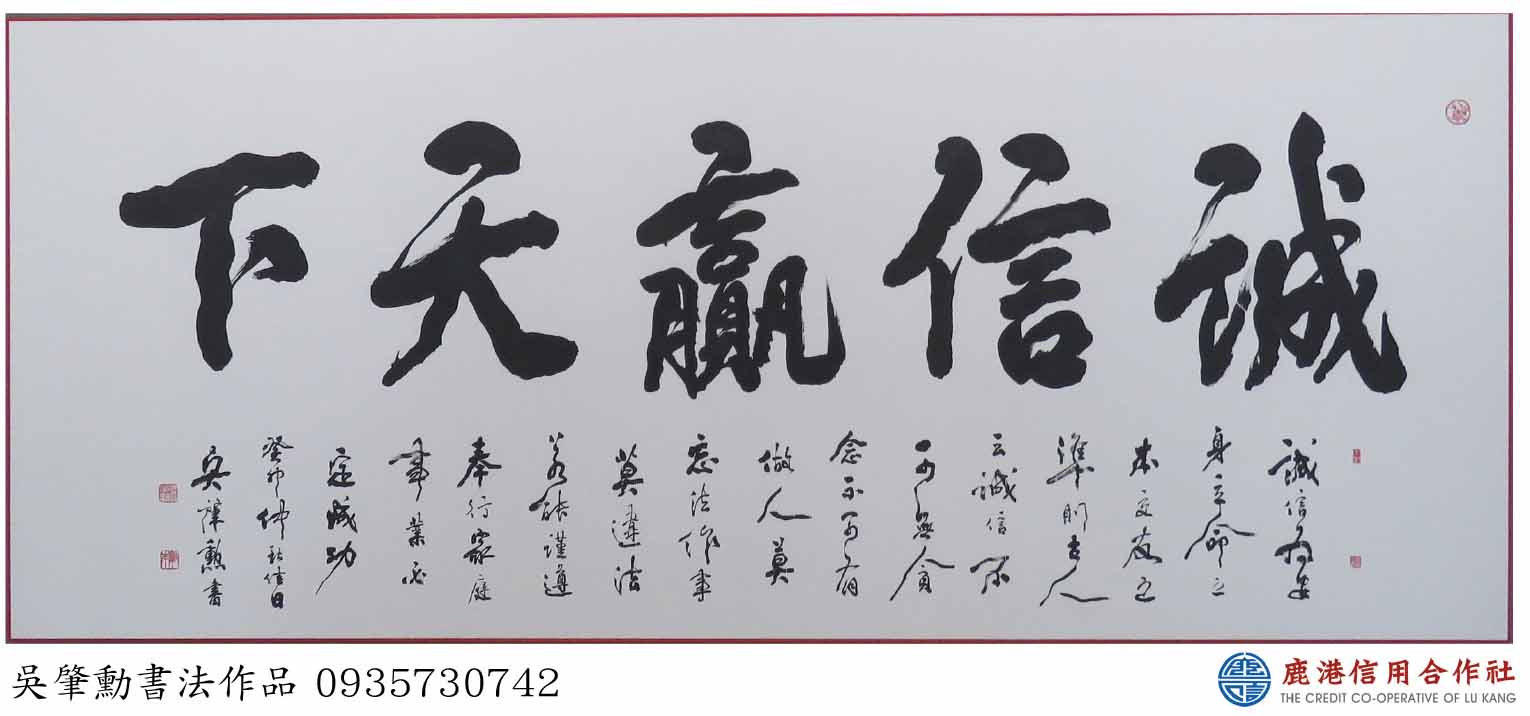 誠信贏天下
誠信為安
身立命之
本交友之
準則古人
云誠信不
可無貪
念不可有
做人莫
忘法作事
莫違法
若能謹遵
奉行家庭
事業必
定成功
癸卯仲秋佳日
吳肇勳書
吳肇勳書法作品 0935730742
鹿港信用合作社
THE CREDIT CO-OPERATIVE OF LU KANG